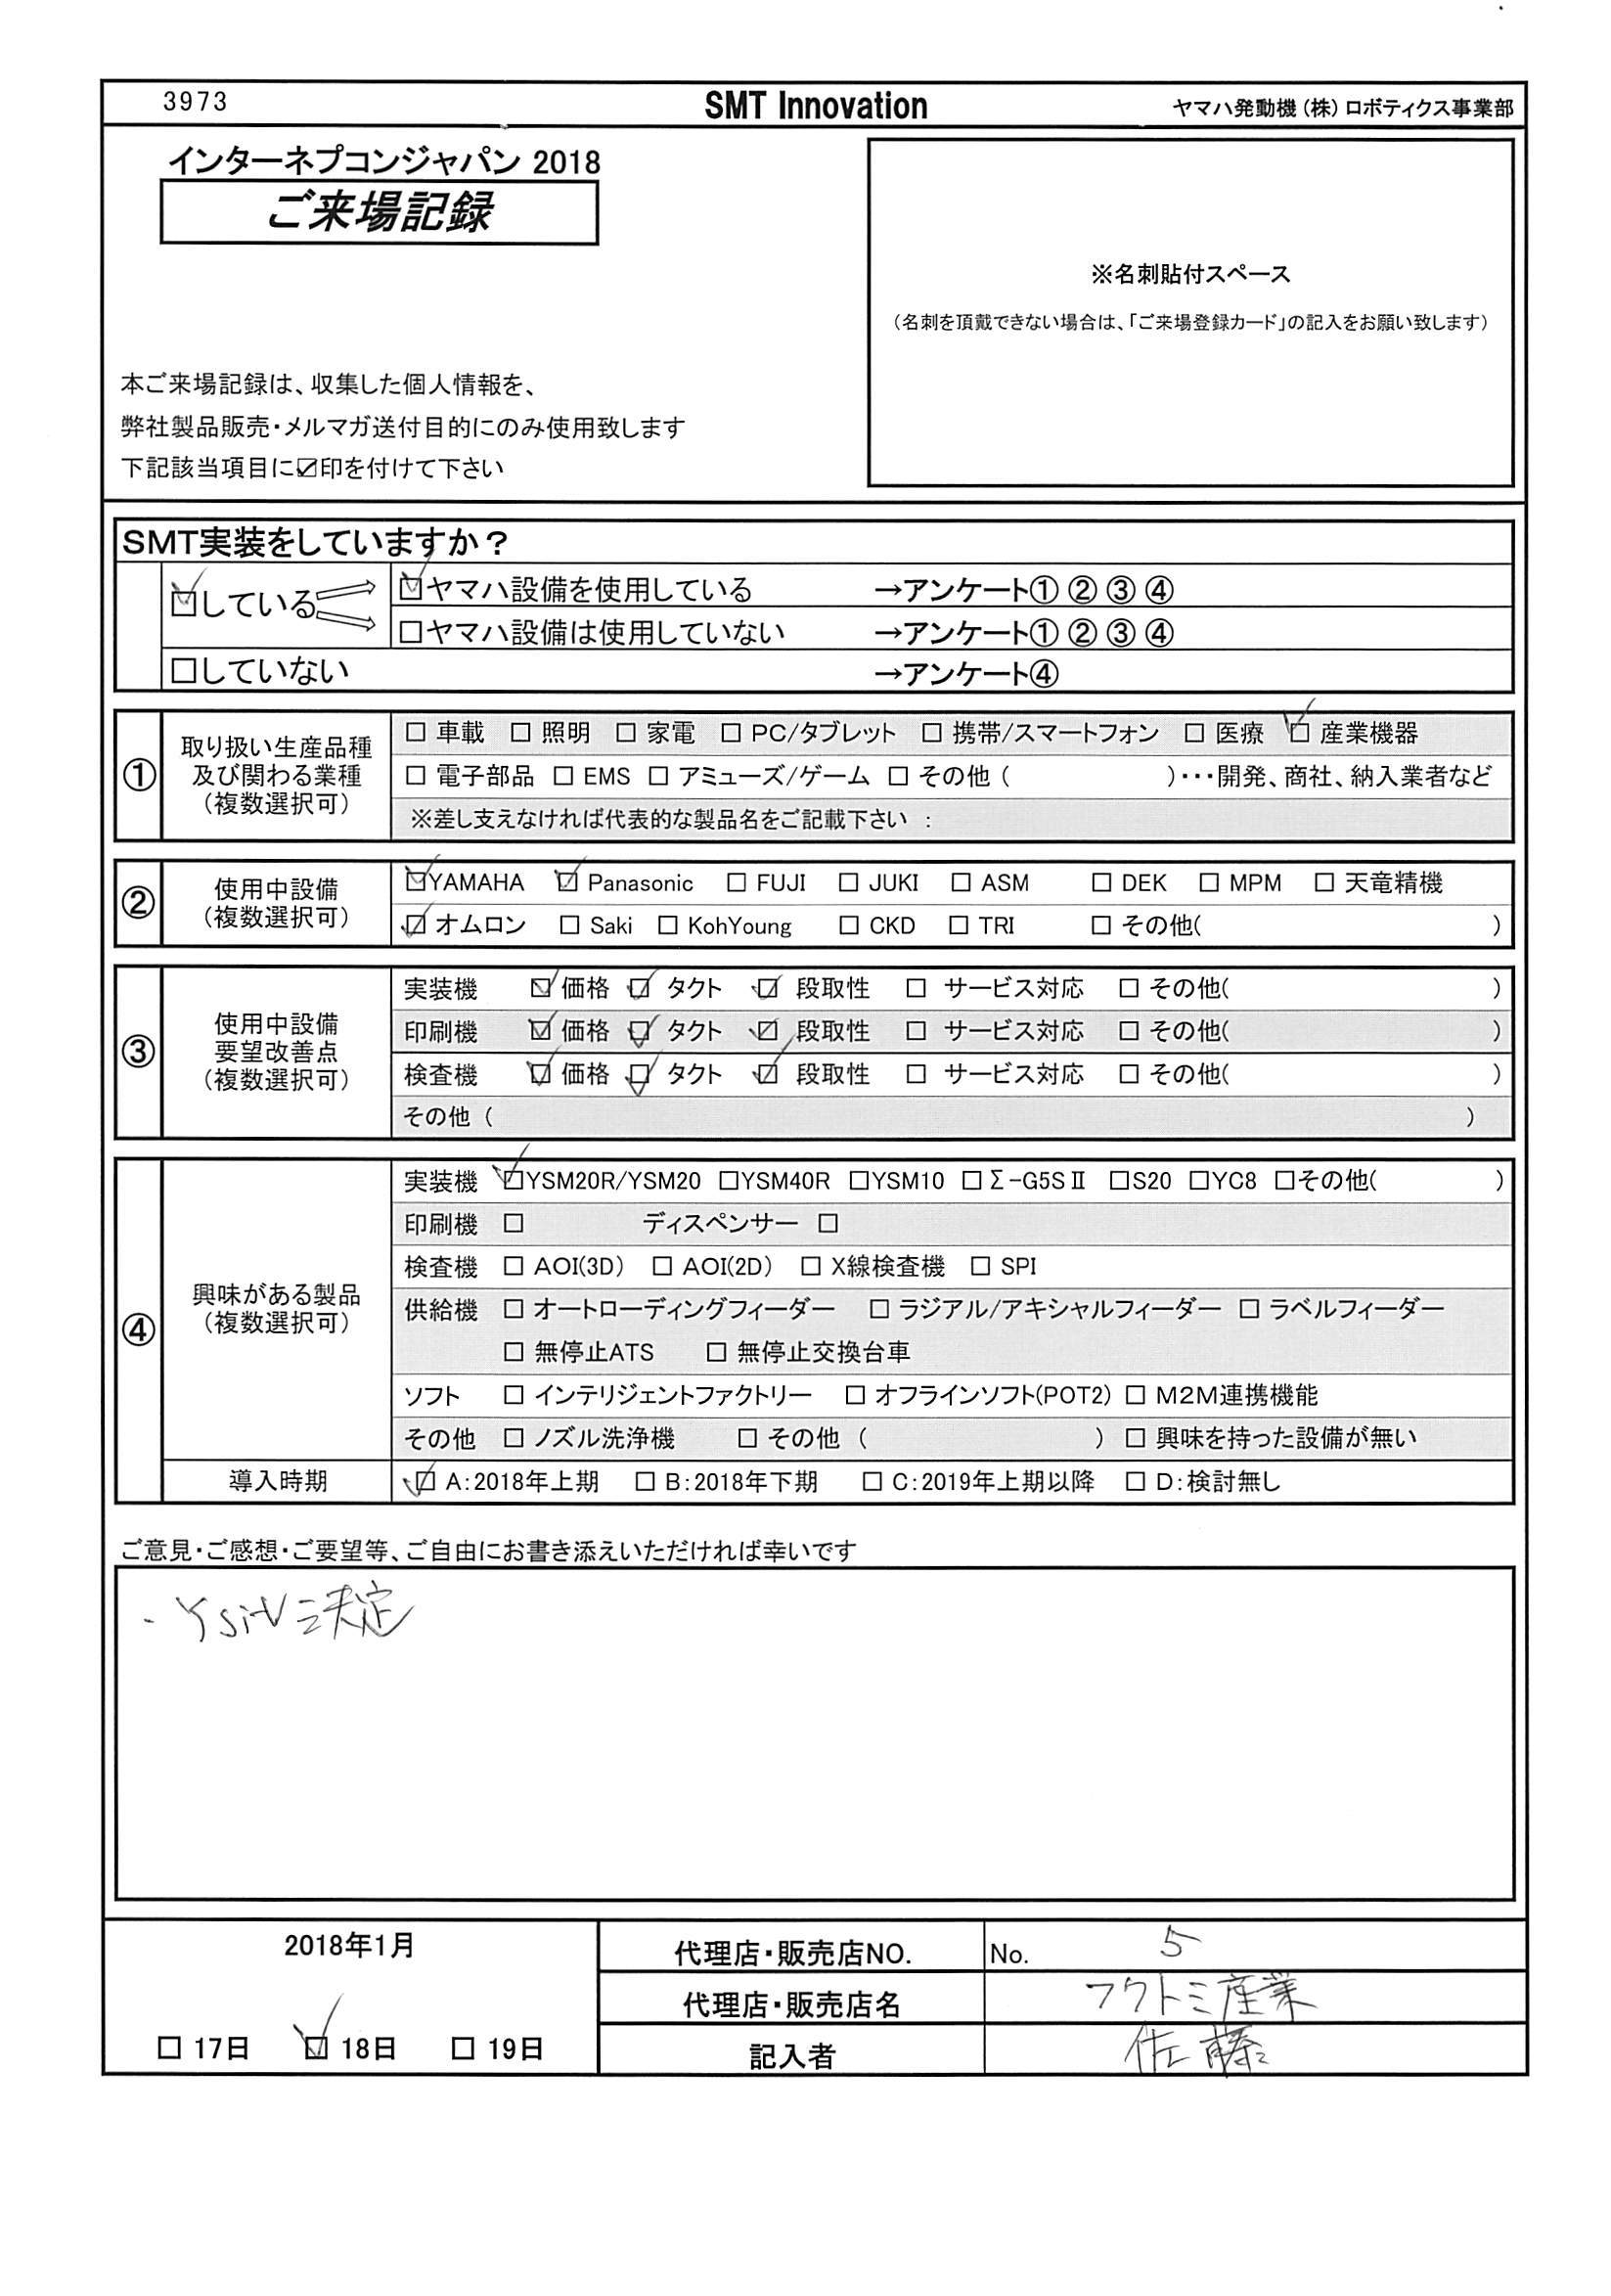 3973 SMT Innovation ヤマハ発動機（株）ロボティクス事業部
インターネプコンジャパン 2018
ご来場記録
※名刺貼付スペース
（名刺を頂戴できない場合は、「ご来場登録カード」の記入をお願い致します）
本ご来場記録は、収集した個人情報を、
弊社製品販売・メルマガ送付目的にのみ使用致します
下記該当項目に☑印を付けて下さい
SMT実装をしていますか？
☑している ☑ヤマハ設備を使用している →アンケート① ② ③ ④
□ヤマハ設備は使用していない →アンケート① ② ③ ④
□していない →アンケート④
① 取り扱い生産品種
及び関わる業種
（複数選択可）
□ 車載 □ 照明 □ 家電 □ PC/タブレット □ 携帯/スマートフォン □ 医療 ☑ 産業機器
□ 電子部品 □ EMS □ アミューズ/ゲーム □ その他（ ）・・・開発、商社、納入業者など
※差し支えなければ代表的な製品名をご記載下さい ：
② 使用中設備
（複数選択可）
☑YAMAHA ☑ Panasonic □ FUJI □ JUKI □ ASM □ DEK □ MPM □ 天竜精機
☑ オムロン □ Saki □ KohYoung □ CKD □ TRI □ その他( )
③ 使用中設備
要望改善点
（複数選択可）
実装機 ☑ 価格 ☑ タクト ☑ 段取性 □ サービス対応 □ その他( )
印刷機 ☑ 価格 ☑ タクト ☑ 段取性 □ サービス対応 □ その他( )
検査機 ☑ 価格 ☑ タクト ☑ 段取性 □ サービス対応 □ その他( )
その他（ ）
④ 興味がある製品
（複数選択可）
実装機 ☑YSM20R/YSM20 □YSM40R □YSM10 □Σ-G5SⅡ □S20 □YC8 □その他( )
印刷機 □ ディスペンサー □
検査機 □ AOI(3D) □ AOI(2D) □ X線検査機 □ SPI
供給機 □ オートローディングフィーダー □ ラジアル/アキシャルフィーダー □ ラベルフィーダー
□ 無停止ATS □ 無停止交換台車
ソフト □ インテリジェントファクトリー □ オフラインソフト(POT2) □ M2M連携機能
その他 □ ノズル洗浄機 □ その他（ ） □ 興味を持った設備が無い
導入時期 ☑ A:2018年上期 □ B:2018年下期 □ C:2019年上期以降 □ D:検討無し
ご意見・ご感想・ご要望等、ご自由にお書き添えいただければ幸いです
2018年1月
□ 17日 ☑ 18日 □ 19日
代理店・販売店NO. No. 5
代理店・販売店名 フクトミ産業
記入者 佐藤